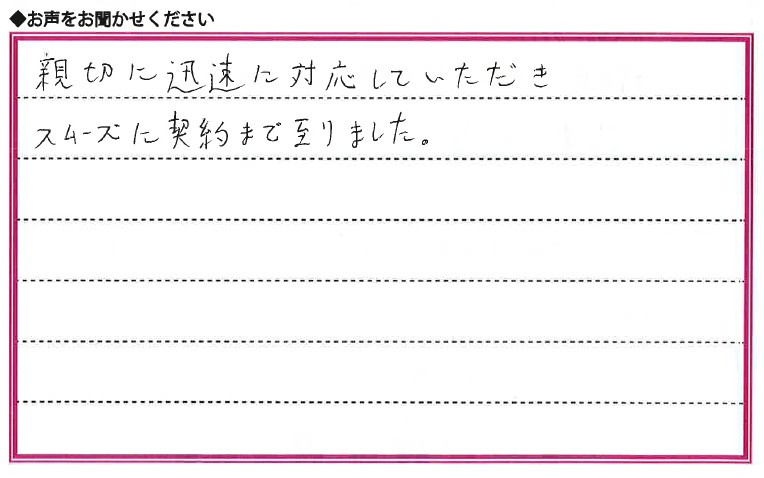 ◆お声をお聞かせください
親切に迅速に対応していただき
スムーズに契約まで至りました。